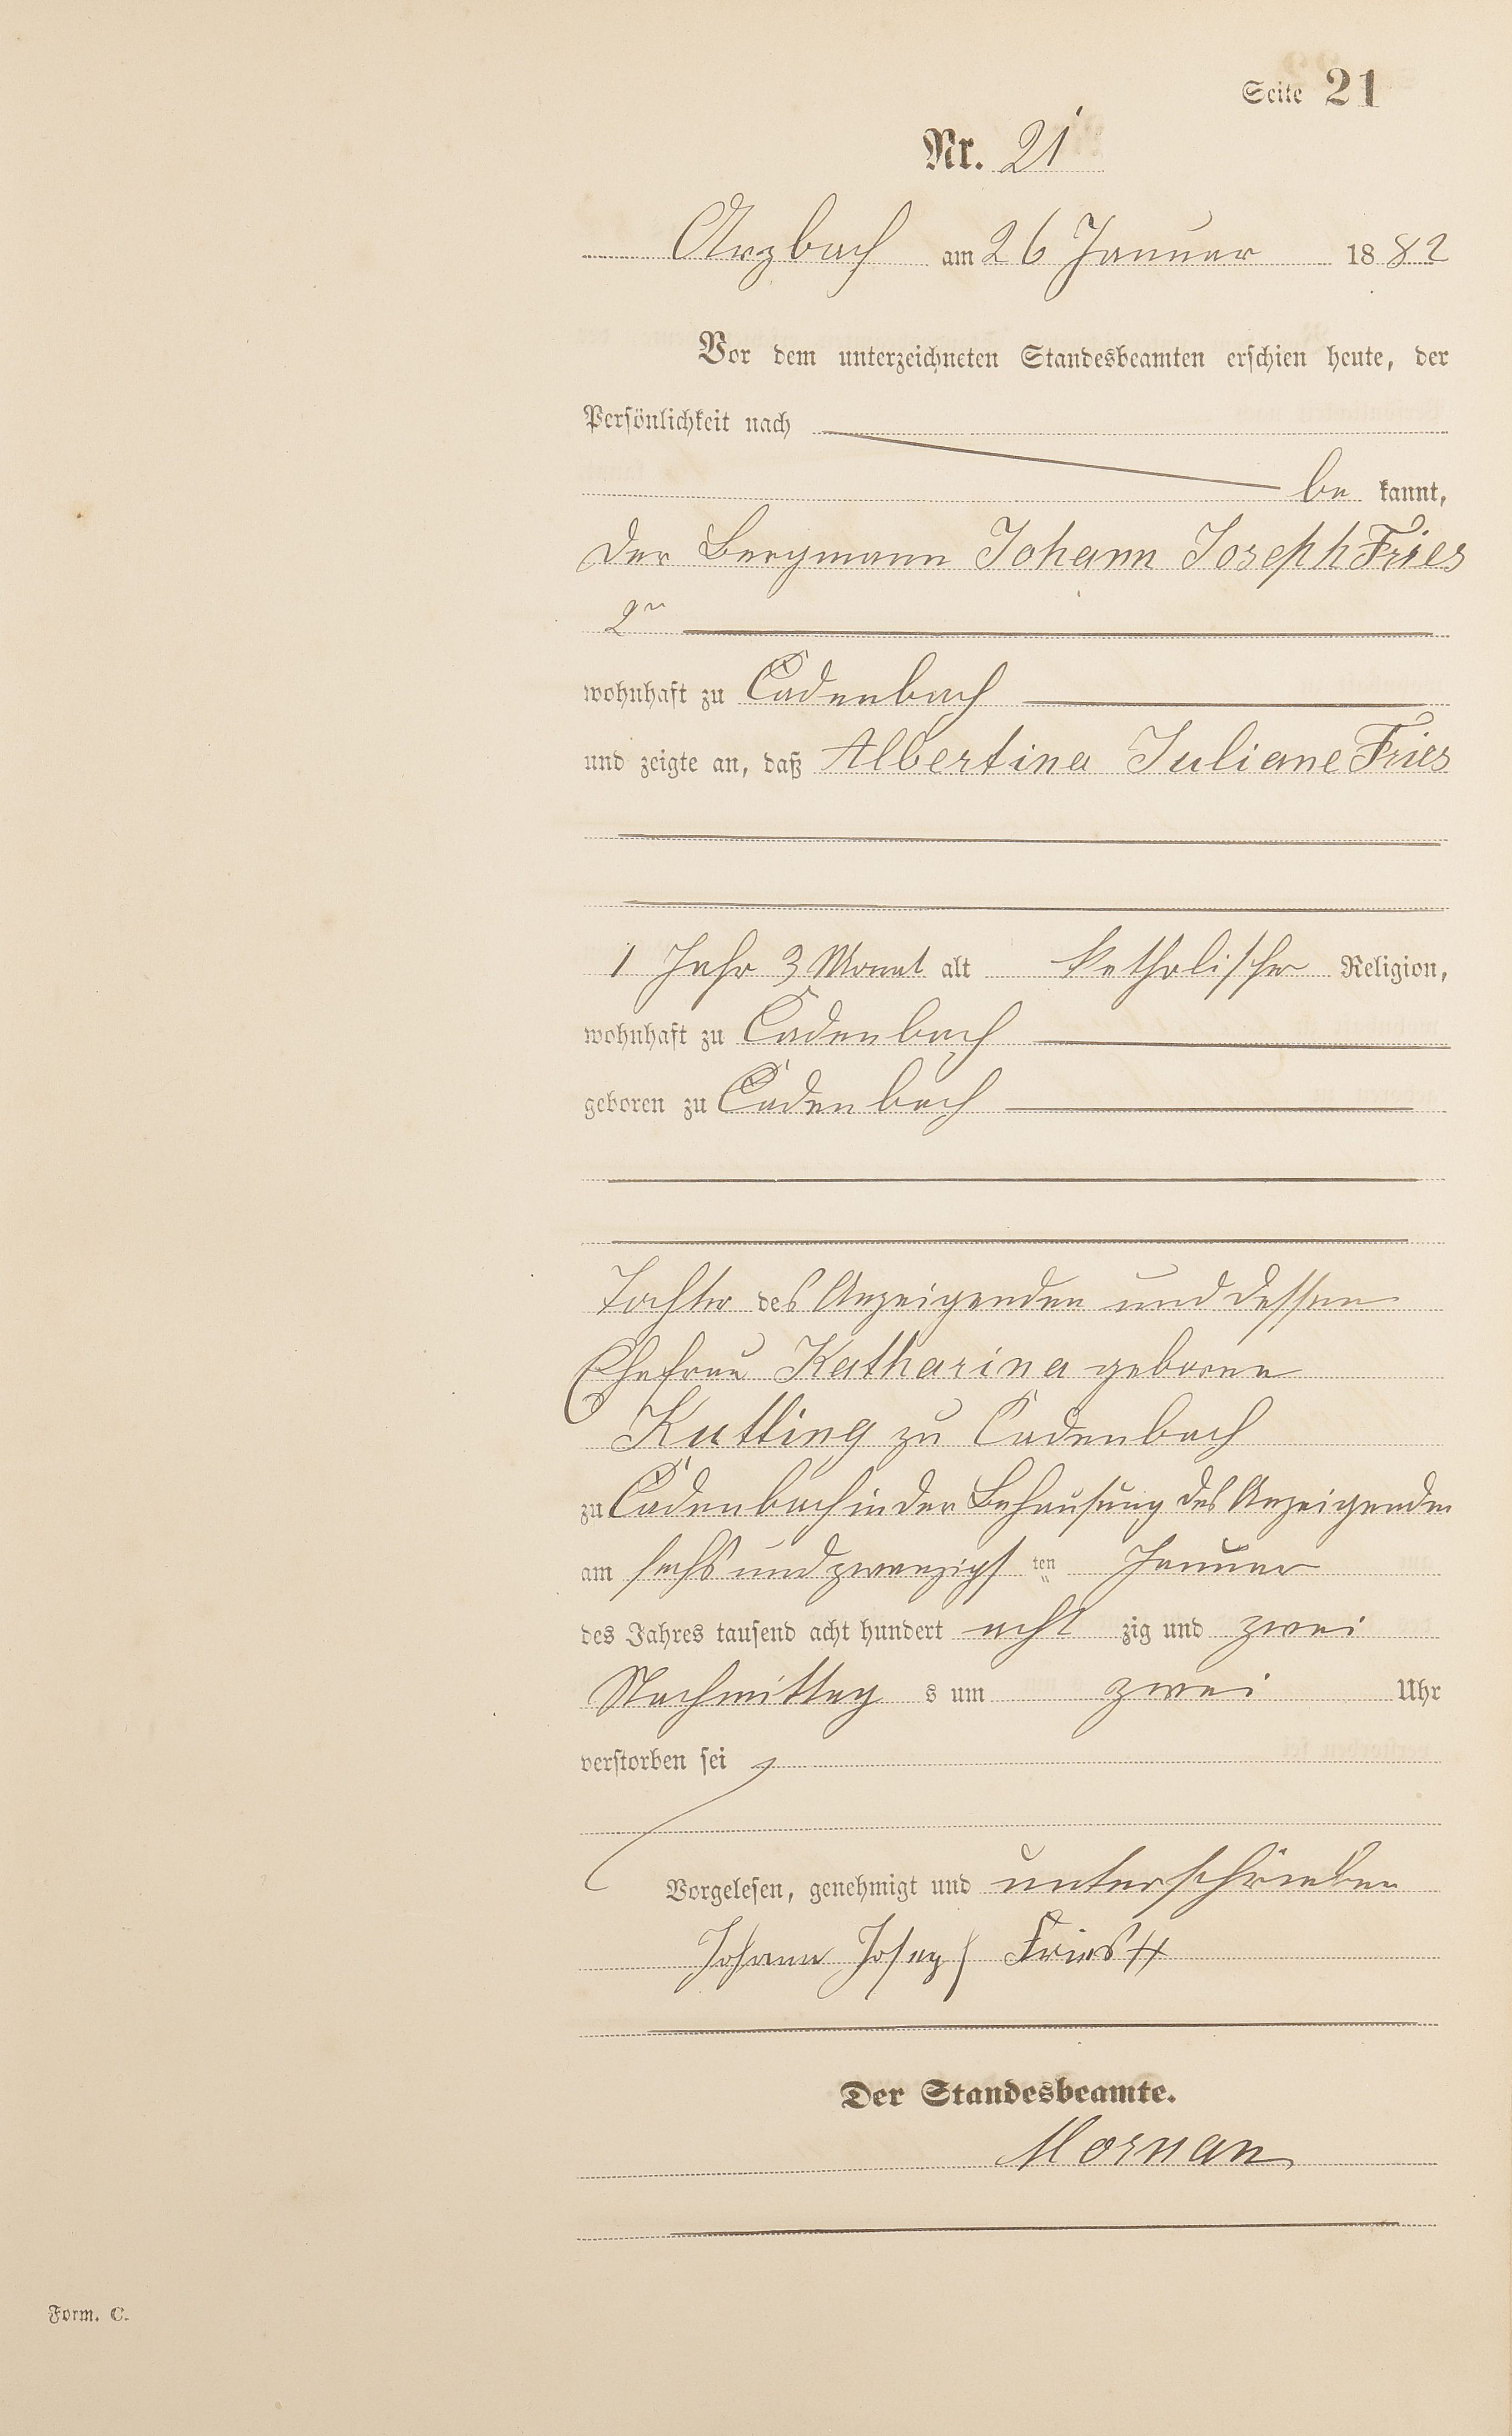 Seite 21
Nr. 21
Arzbach am 26 Januar 1882
Vor dem unterzeichneten Standesbeamten erschien heute, der
Persönlichkeit nach
be kannt,
der Bergmann Johann Joseph Fries
2r
wohnhaft zu Cadenbach
und zeigte an, daß Albertina Juliane Fries
1 Jahr 3 Monat alt katholischer Religion,
wohnhaft zu Cadenbach
geboren zu Cadenbach
Tochter des Anzeigenden und dessen
Ehefrau Katharina geborene
Kutting zu Cadenbach
zu Cadenbach in der Behausung des Anzeigenden
am sechs und zwanzigs ten Januar
des Jahres tausend acht hundert acht zig und zwei
Nachmittag s um zwei Uhr
verstorben sei
Vorgelesen, genehmigt und unterschrieben
Johann Josep Fries
Der Standesbeamte.
Form. C.